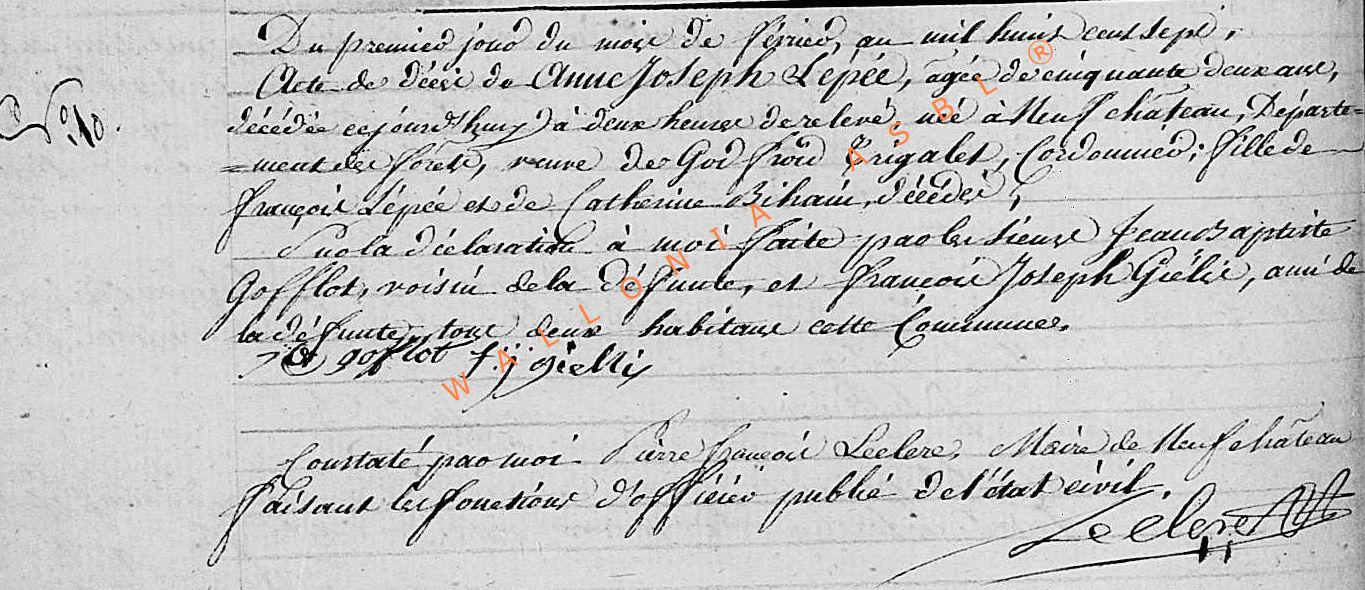 Du premier jour du mois de février, an mil huit cent sept.
N.° 10.
Acte de décès de Anne Joseph Lépée, agée de cinquante deux ans,
décédée cejourd'huy à deux heures de relevé, née à Neufchâteau, Départe-
=ment des forêts, veuve de Godfroid Prigalet, Cordonnier; fille de
françois Lépée et de Catherine Bihain, décédés;
Sur la déclaration à moi faite par les sieurs Jean Baptiste
Gofflot, voisin de la défunte, et françois Joseph Giélis, ami de
la défunte, tous deux habitans cette Commune.
gofflot f: j: gielis
Constaté par moi Pierre françois Leclere, Maire de Neufchâteau
faisant les fonctions d'officier public de l'état civil.
Leclere
WALLONIA ASBL ®